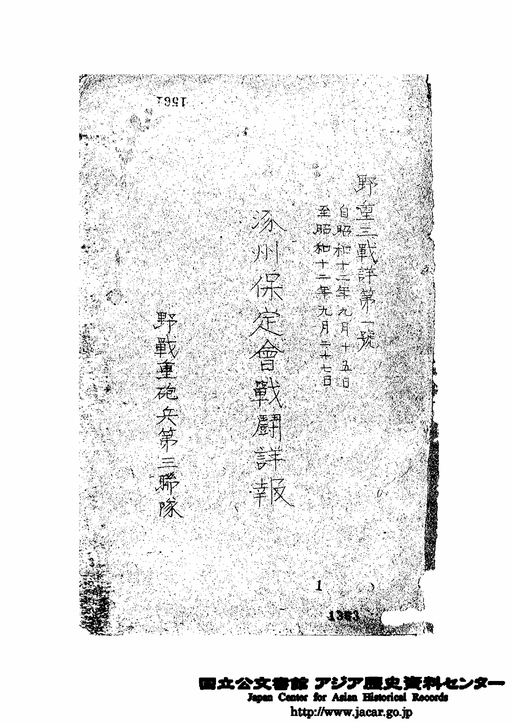 1561
野重三戰詳第一號
自昭和十二年九月十五日
至昭和十二年九月二十七日
涿州保定會戰鬪詳報
野戰重砲兵第三聯隊
1
1363
国立公文書館 アジア歴史資料センター
Japan Center for Asian Historical Records
http://www.jacar.go.jp